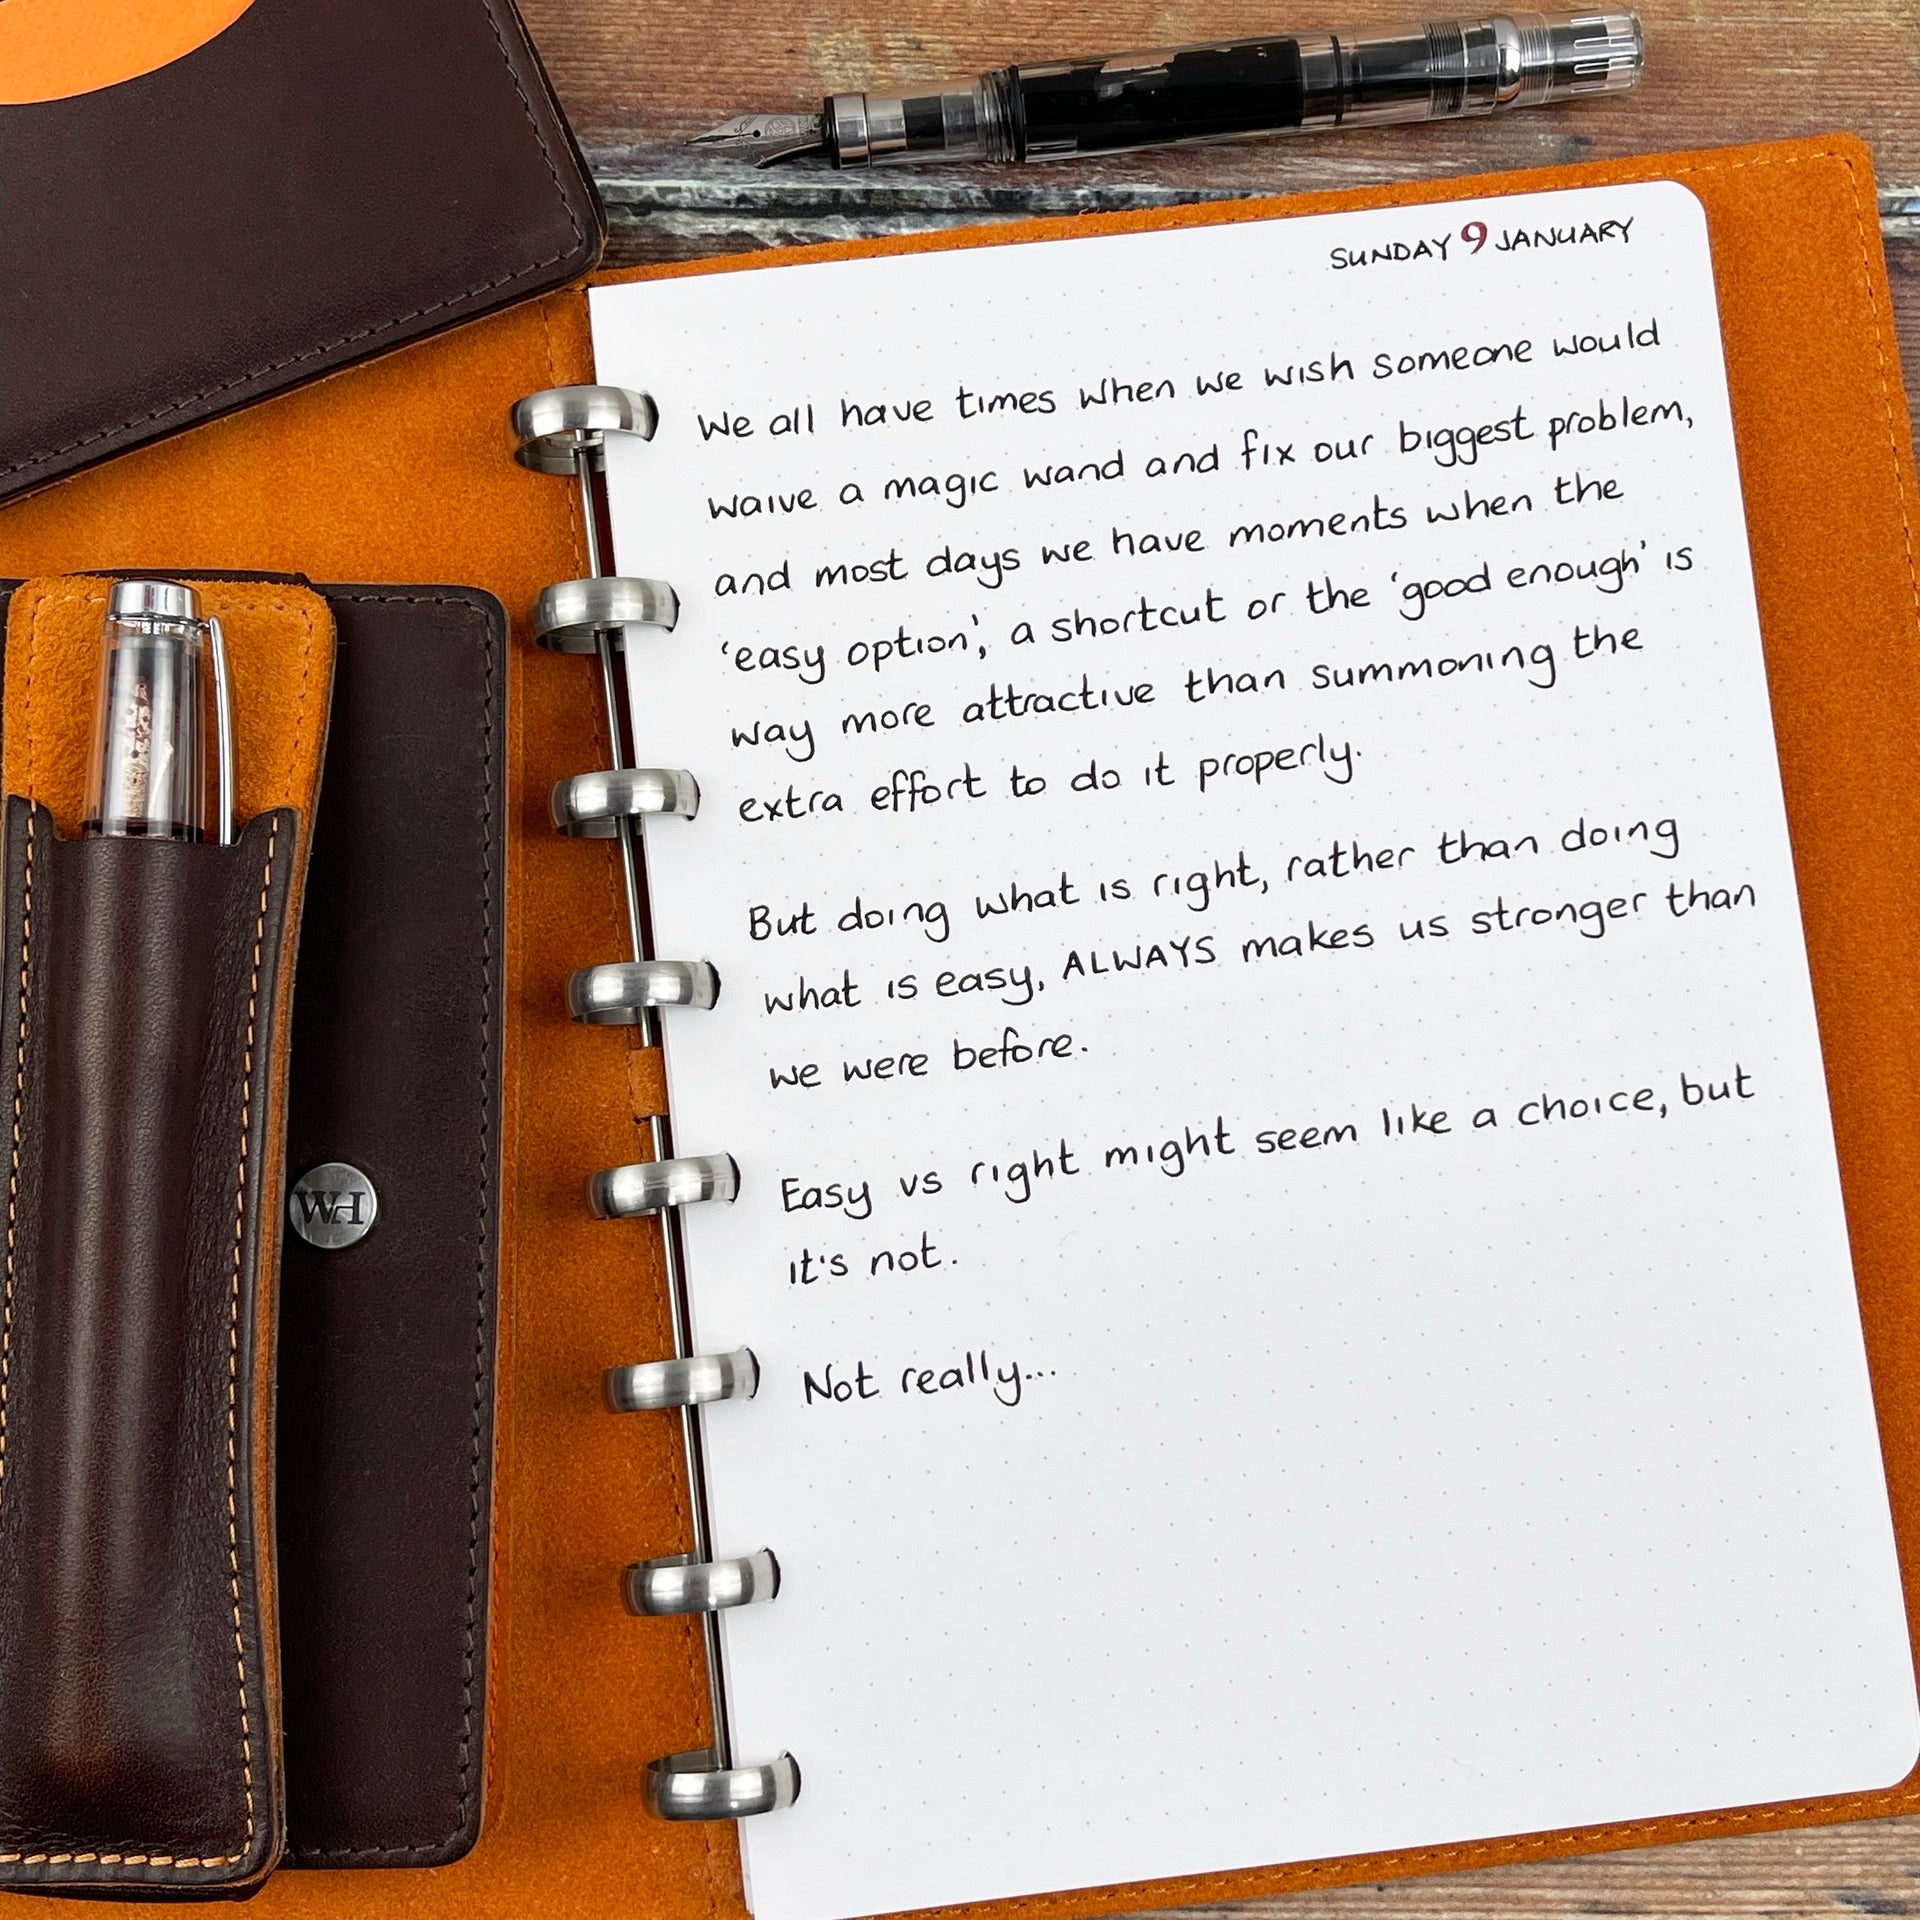 SUNDAY 9 JANUARY
We all have times when we wish someone would
waive a magic wand and fix our biggest problem,
and most days we have moments when the
'easy option', a shortcut or the 'good enough' is
way more attractive than summoning the
extra effort to do it properly.
But doing what is right, rather than doing
what is easy, ALWAYS makes us stronger than
we were before.
Easy vs right might seem like a choice, but
it's not.
Not really...
WH